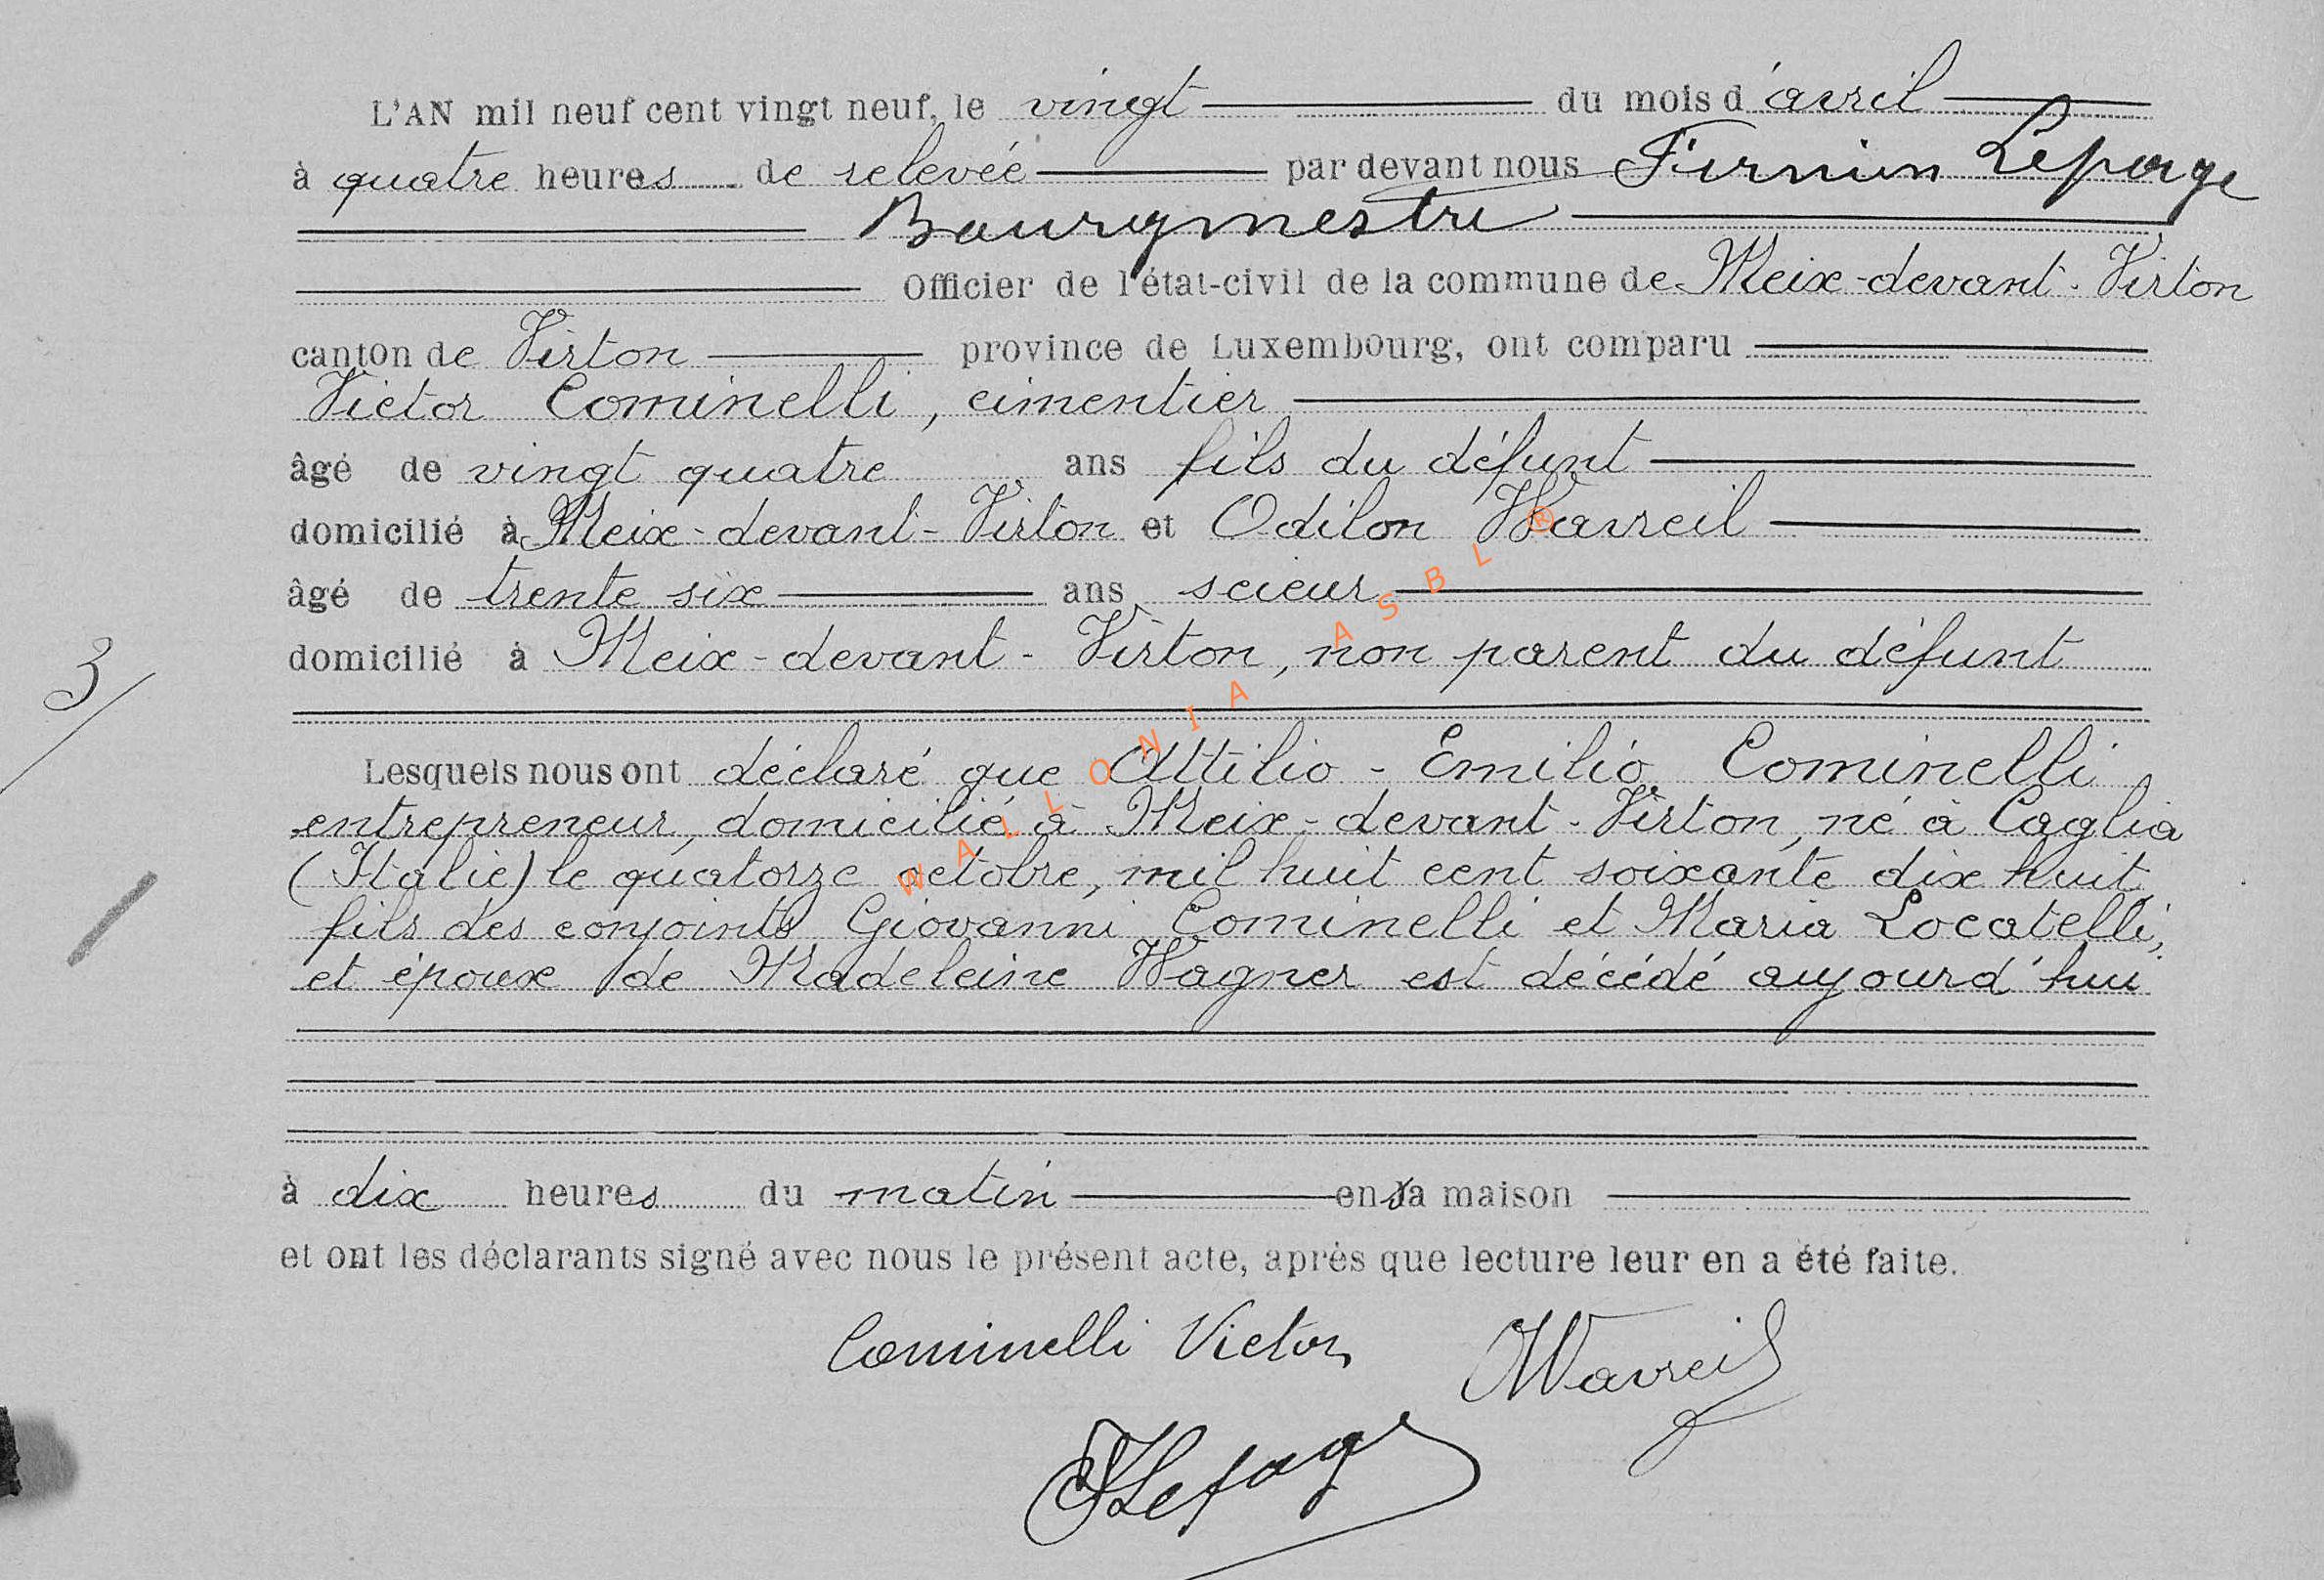 L'AN mil neuf cent vingt neuf, le vingt du mois d'avril
à quatre heures de relevée par devant nous Firmin Lepage
Bourgmestre
Officier de l'état-civil de la commune de Meix-devant-Virton
canton de Virton province de Luxembourg, ont comparu
Victor Cominelli, cimentier
âgé de vingt quatre ans fils du défunt
domicilié à Meix-devant-Virton et Odilon Wavreil
âgé de trente six ans scieur
domicilié à Meix-devant-Virton, non parent du défunt
3/
Lesquels nous ont déclaré que Attilio-Emilio Cominelli
entrepreneur, domicilié à Meix-devant-Virton, né à Caglia
(Italie) le quatorze octobre, mil huit cent soixante dix huit,
fils des conjoints Giovanni Cominelli et Maria Locatelli,
et époux de Madeleine Wagner est décédé aujourd'hui
à dix heures du matin en sa maison
et ont les déclarants signé avec nous le présent acte, après que lecture leur en a été faite.
Cominelli Victor OWavreil
FLepage
WALLONIA ASBL ®